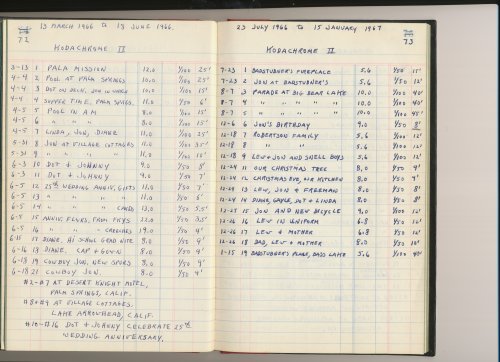 13 MARCH 1966 to 18 JUNE 1966.
72
KODACHROME II
3-13 1 PALA MISSION 12.0 1/100 25'
4-4 2 POOL AT PALM SPRINGS 10.0 1/100 25'
4-4 3 DOT ON DECK, JON IN WATER 10.0 1/100 15'
4-4 4 SUPPER TIME, PALM SPRGS. 11.0 1/50 6'
4-5 5 POOL IN AM 8.0 1/100 15'
4-5 6 " " " 8.0 1/100 15'
4-5 7 LINDA, JON, DIANE 11.0 1/100 25'
5-31 8 JON AT VILLAGE COTTAGES 11.0 1/100 35'
5-31 9 " " " " 11.0 1/100 11'
6-3 10 DOT & JOHNNY 9.0 1/50 8'
6-3 11 DOT & JOHNNY 9.0 1/50 7'
6-5 12 25th WEDDING ANNIV, GIFTS 11.0 1/50 7'
6-5 13 " " " " 11.0 1/50 5'
6-5 14 " " " CARDS 13.0 1/50 3.5'
6-5 15 ANNIV FLWRS, FROM PHYS 12.0 1/50 3.5'
6-5 16 " " - GREGORS 19.0 1/50 4'
6-15 17 DIANE, HI SCHOOL GRAD NITE 8.0 1/50 4'
6-16 18 DIANE, CAP & GOWN 8.0 1/50 4'
6-18 19 COWBOY JON, NEW SPURS 8.0 1/50 4'
6-18 21 COWBOY JON. 8.0 1/50 4'
#2-#7 AT DESERT KNIGHT MOTEL,
PALM SPRINGS, CALIF.
#8&#9 AT VILLAGE COTTAGES.
LAKE ARROWHEAD, CALIF.
#10-#16 DOT & JOHNNY CELEBRATE 25th
WEDDING ANNIVERSARY.
23 JULY 1966 to 15 JANUARY 1967
73
KODACHROME II
7-23 1 BADSTUBNER'S FIREPLACE 5.6 1/50 15'
7-23 2 JON AT BADSTUBNER'S 5.6 1/50 12'
8-7 3 PARADE AT BIG BEAR LAKE 10.0 1/100 40'
8-7 4 " " " " " 10.0 1/100 35'
8-7 5 " " " " " 10.0 1/100 45'
12-6 6 JON'S BIRTHDAY 9.0 1/50 8'
12-18 7 ROBERTSON FAMILY 5.6 1/100 12'
12-18 8 " " 5.6 1/100 12'
12-18 9 LEW & JON AND SNELL BOYS 5.6 1/50 12'
12-24 11 OUR CHRISTMAS TREE 8.0 1/50 9'
12-24 12 CHRISTMAS EVE, THE KITCHEN 8.0 1/50 9'
12-24 13 LEW, JON & FREEMAN 8.0 1/50 8'
12-24 14 DIANE, GAYLE, DOT & LINDA 8.0 1/50 8'
12-25 15 JON AND NEW BICYCLE 9.0 1/50 12'
12-26 16 LEW IN UNIFORM 6.8 1/50 12'
12-26 17 LEW & MOTHER 6.8 1/50 12'
12-26 18 DAD, LEW & MOTHER 8.0 1/50 10'
1-15 19 BADSTUBNER'S PLACE, BASS LAKE 5.6 1/100 40'